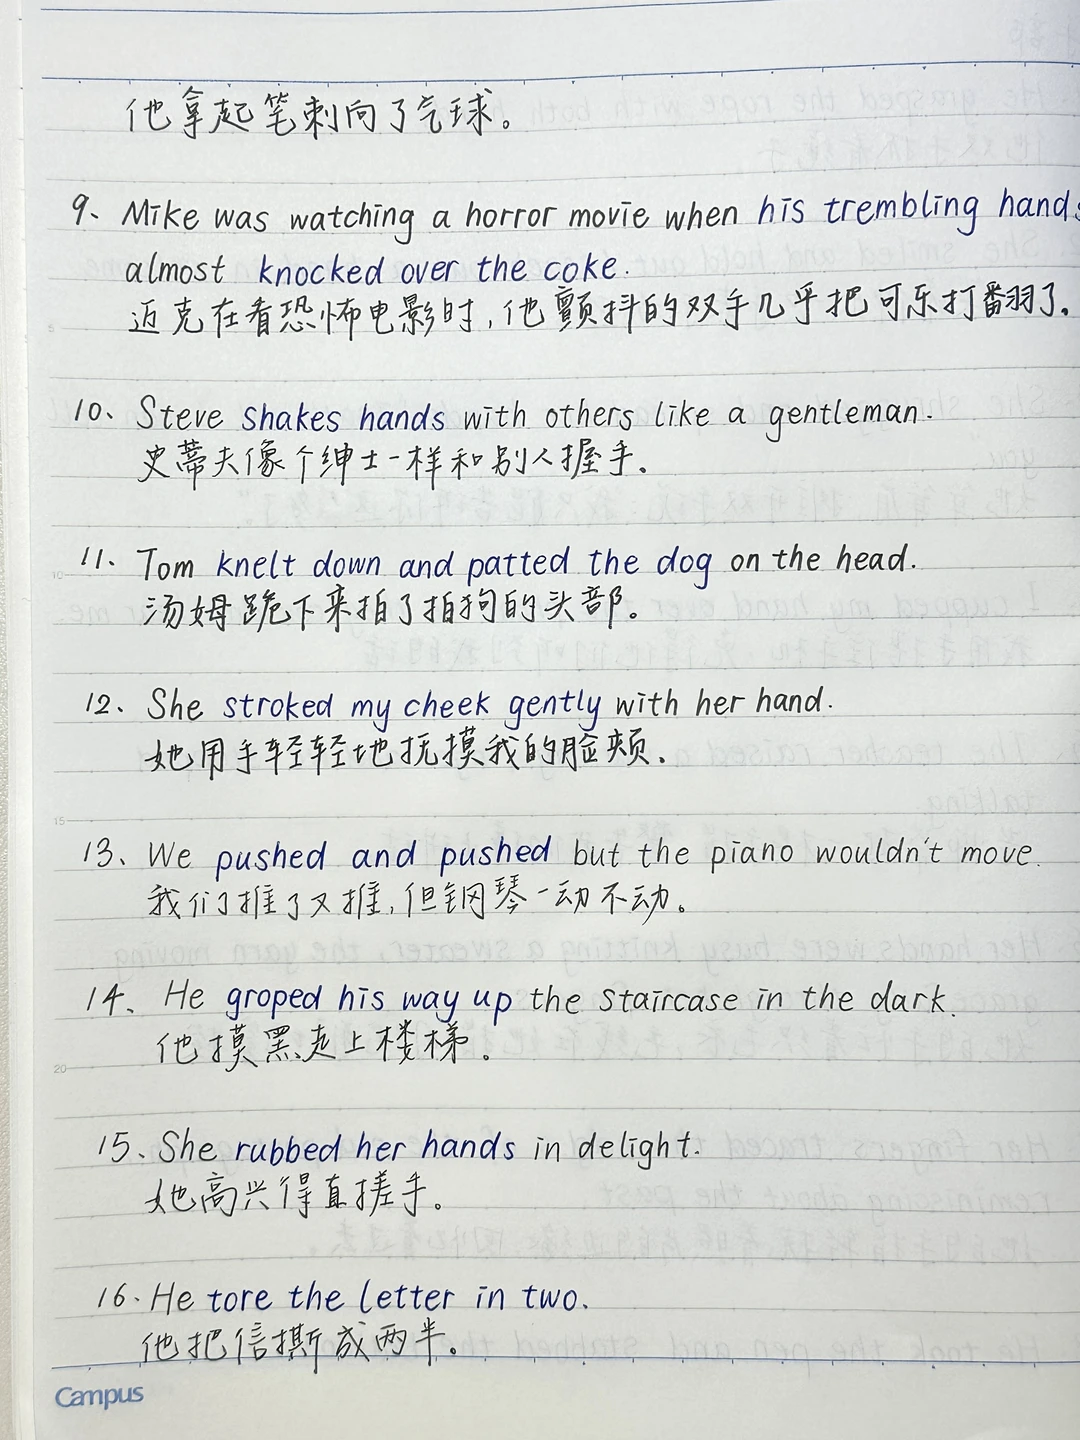 他拿起笔刺向了气球。
9、Mike was watching a horror movie when his trembling hands
almost knocked over the coke.
迈克在看恐怖电影时,他颤抖的双手几乎把可乐打翻了。
10、Steve shakes hands with others like a gentleman.
史蒂夫像个绅士一样和别人握手。
11、Tom knelt down and patted the dog on the head.
汤姆跪下来拍了拍狗的头部。
12、She stroked my cheek gently with her hand.
她用手轻轻地抚摸我的脸颊。
13、We pushed and pushed but the piano wouldn't move.
我们推了又推,但钢琴一动不动。
14、He groped his way up the staircase in the dark.
他摸黑走上楼梯。
15、She rubbed her hands in delight.
她高兴得直搓手。
16.He tore the letter in two.
他把信撕成两半。
Campus